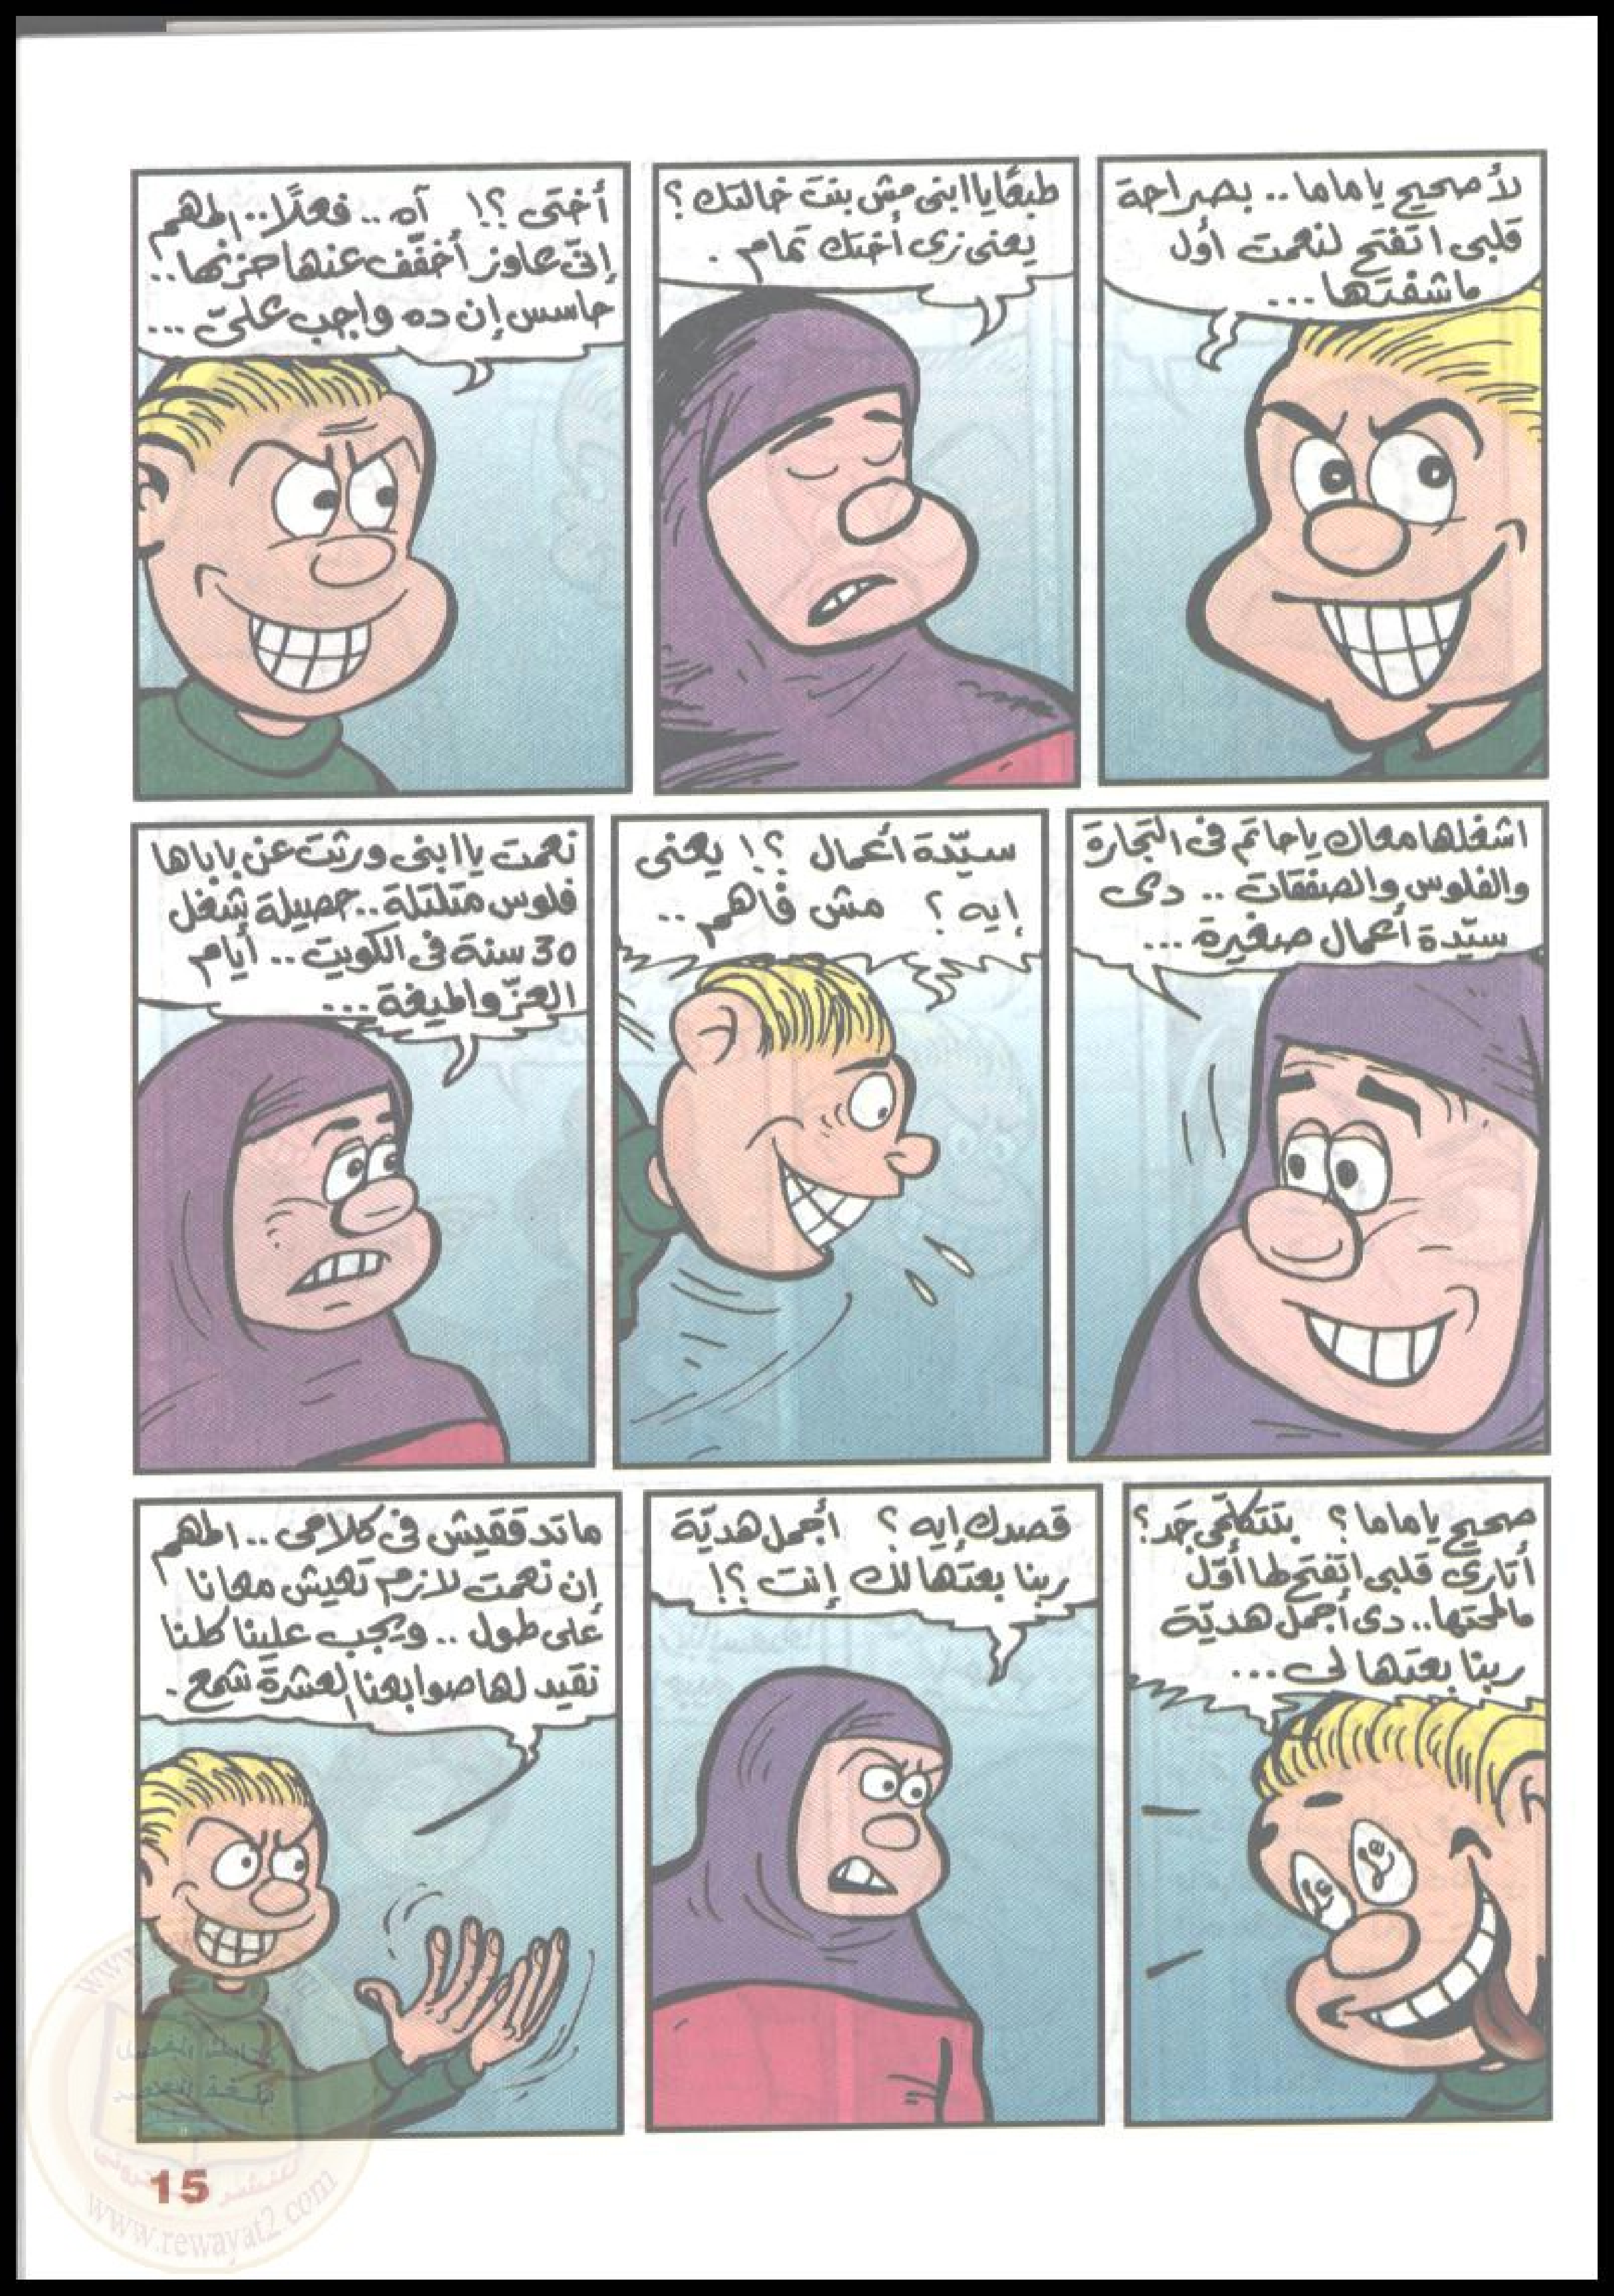 لأ صحيح يا ماما .. بصراحة
قلبى اتفتح لنعمت أول
ما شفتها ...
طبعًا يا ابنى مش بنت خالتك ؟
يعنى زى أختك تمام .
أختى ؟! آه .. فعلًا .. المهم
إنّى عاوز أخفّف عنها حزنها ..
حاسس إن ده واجب علىّ ...
اشغلها معاك يا حاتم فى التجارة
والفلوس والصفقات .. دى
سيّدة أعمال صغيرة ...
سيّدة أعمال ؟! يعنى
إيه ؟ مش فاهم ..
نعمت يا ابنى ورثت عن باباها
فلوس متلتلة .. حصيلة شغل
30 سنة فى الكويت .. أيام
العزّ والميغة ...
صحيح يا ماما ؟ بتتكلّمى جَد ؟
أتارى قلبى اتفتح لها أوّل
ما لمحتها .. دى أجمل هديّة
ربنا بعتها لى ...
قصدك إيه ؟ أجمل هديّة
ربنا بعتها لك إنت ؟!
ما تدققيش فى كلامى .. المهم
إن نعمت لازم تعيش معانا
على طول .. ويجب علينا كلنا
نقيد لها صوابعنا العشرة شمع .
15
www.rewayat2.com